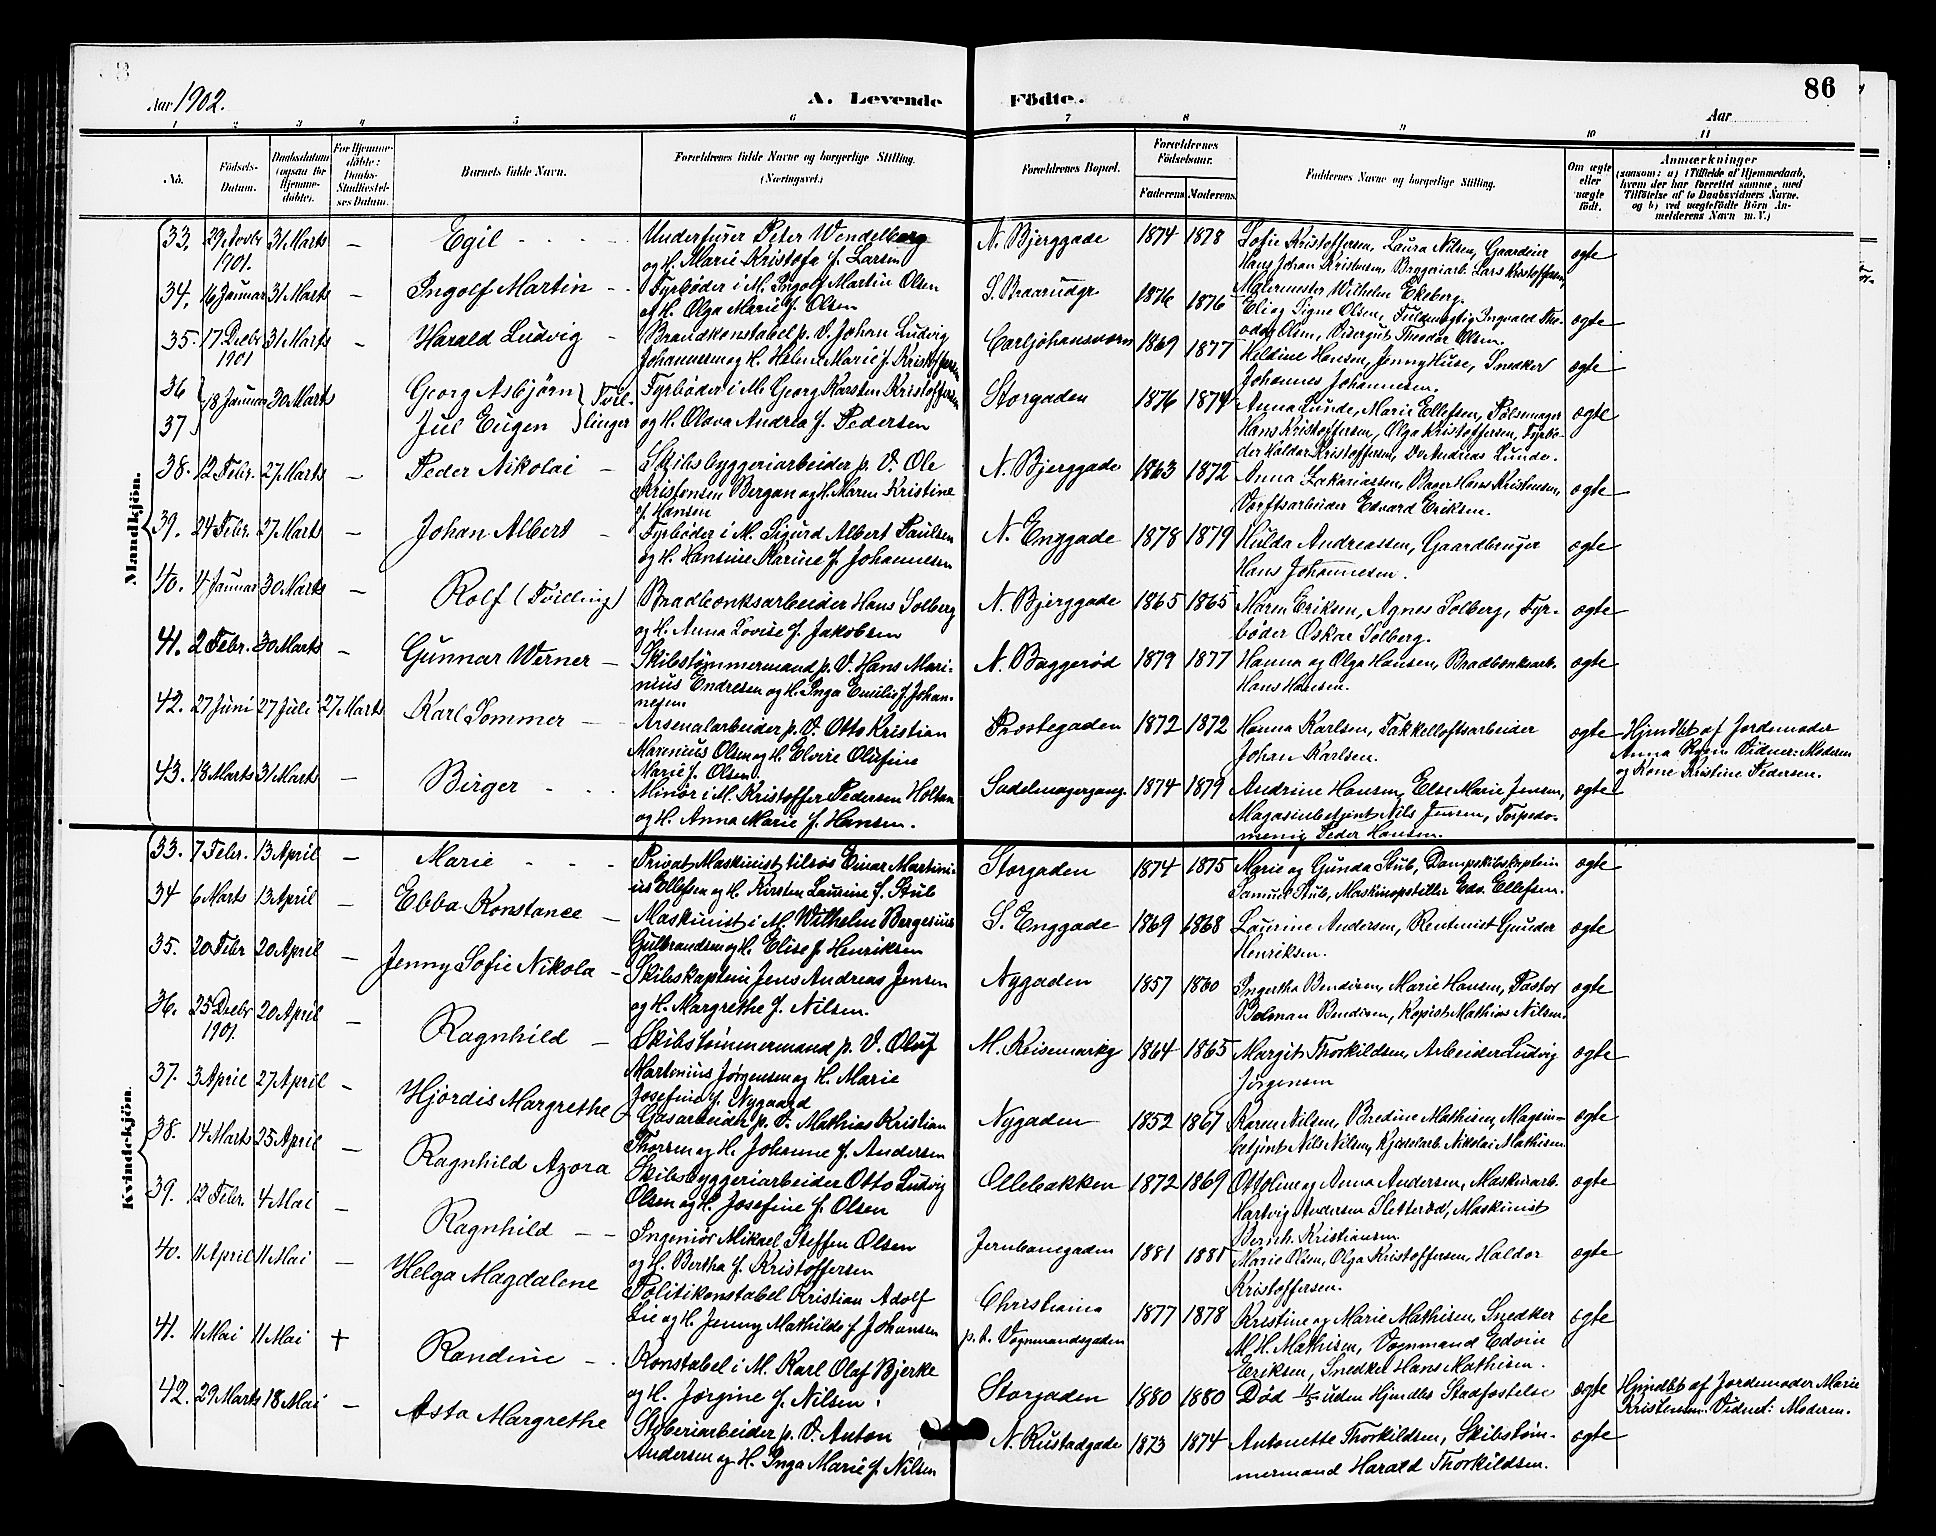 Aar 1902.
A. Levende
Födte.
86
Aar
1 2 3 4 5 6 7 8 9 10 11
No.
Födsels-Datum.
Daabsdatum (ogsaa för Hjemme-döbte).
For Hjemme-döbte: Daabs-Stadfæstel-ses Datum.
Barnets fulde Navn.
Forældrenes fulde Navne og borgerlige Stilling. (Næringsvei.)
Forældrenes Bopæl.
Forældrenes Födselsaar.
Faderens. Moderens.
Faddernes Navne og borgerlige Stilling.
Om ægte eller uægte födt.
Anmærkninger
(saasom: a) i Tilfælde af Hjemmedaab, hvem der har forrettet samme, med Tilföielse af to Daabsvidners Navne. og b) ved uægtefödte Börn An-melderens Navn m. V.)
Mandkjön.
33. 29 Novbr 1901. 31 Marts – Egil
Underfurer Peter Wendelborg
og H. Marie Kristofa f. Larsen
N. Bjerggade 1874 1878
Sofie Kristoffersen, Laura Nilsen, Gaardeier
Hans Johan Kristensen, Bryggeriarb. Lars Kristoffersen,
Malermester Wilhelm Ekeberg.
ægte
34. 16 Januar 31 Marts – Ingolf Martin
Fyrbøder i M. Ingolf Martin Olsen
og H. Olga Marie f. Olsen
S. Braarudgt 1876 1876
Eli og Signe Olsen, Fuldmægtig Ingvald Theodor Olsen, Visergut Theodor Olsen.
ægte
35. 17 Decbr 1901 31 Marts – Harald Ludvig
Brandkonstabel p. V. Johan Ludvig
Johannesen og H. Helene Marie f. Kristoffersen
Carljohansværn 1869 1877
Heldine Hansen, Jenny Huse, Snedker
Johannes Johannesen.
ægte
36 37 18 Januar 30 Marts Georg Asbjørn Jul Eugen Tvillinger
Fyrbøder i M. Georg Karsten Kristoffersen
og H. Olava Andrea f. Pedersen
Storgaden 1876 1874
Anna Lunde, Marie Ellefsen, Pølsemager
Hans Kristoffersen, Olga Kristoffersen, Fyrbø-
der Haldor Kristoffersen, Do Andreas Lunde.
ægte
38. 12 Febr. 27 Marts – Peder Nikolai
Skibsbyggeriarbeider p. V. Ole
Kristensen Bergan og H. Maren Kristine
f. Hansen
N. Bjerggade 1863 1872
Anna Zakariassen, Bager Hans Kristensen,
Værftsarbeider Edvard Eriksen.
ægte
39. 24 Febr. 27 Marts – Johan Albert
Fyrbøder i M. Sigurd Albert Paulsen
og H. Hansine Karine f. Johannesen
N. Enggade 1878 1879
Hulda Andreassen, Gaardbruger
Hans Johannesen.
ægte
40. 4 Januar 30 Marts – Rolf (Tvilling)
Bradbænksarbeider Hans Solberg
og H. Anna Lovise f. Jakobsen
N. Bjerggade 1865 1865
Maren Eriksen, Agnes Solberg, Fyr-
bøder Oskar Solberg.
ægte
41. 2 Febr. 30 Marts – Gunnar Werner
Skibstømmermand p. V. Hans Mari-
nius Endresen og H. Inga Emilie f. Johan-
nesen
N. Baggerød 1879 1877
Hanna og Olga Hansen, Bradbænksarb.
Hans Hansen.
ægte
42. 27 Juni 27 Juli 27 Marts Karl Sommer
Arsenalarbeider p. V. Otto Kristian
Marenius Olsen og H. Elvire Olufine
Marie f. Olsen.
Præstegaden 1872 1872
Hanna Karlsen, Takkelloftsarbeider
Johan Karlsen.
ægte
Hjmdbt af Jordemoder
Anna Vidner: Moderen
og Kone Kristine Pedersen.
43. 18 Marts 31 Marts – Birger
Minør i M. Kristoffer Pedersen Holtan
og H. Anna Marie f. Hansen.
Sadelmagergang. 1874 1879
Andrine Hansen, Else Marie Jensen,
Magasinbetjent Nils Jensen, Torpedo-
menig Peder Hansen.
ægte
Kvindekjön.
33. 7 Febr. 13 April – Marie
Privat Maskinist tilsøs Einar Martini-
us Ellefsen og H. Kirsten Laurine f. Stub
Storgaden 1874 1875
Marie og Gunda Stub, Dampskibskaptein
Samuel Stub, Maskinopstiller Edv. Ellefsen.
ægte
34 6 Marts 13 April – Ebba Konstance
Maskinist i M. Wilhelm Bergesius
Gulbrandsen og H. Elise f. Henriksen
S. Enggade 1869 1868
Laurine Andersen, Rentenist Gunder
Henriksen.
ægte
35. 20 Febr 20 April – Jenny Sofie Nikola
Skibskaptein Jens Andreas Jensen
og H. Margrethe f. Nilsen.
Nygaden 1857 1860
Ingertha Bendixen, Marie Hansen, Pastor
Bolman Bendixen, Kopist Mathias Nilsen.
ægte
36. 25 Decbr 1901. 20 April – Ragnhild
Skibstømmermand p. V. Oluf
Martenius Jørgensen og H. Marie
Josefine f. Nygaard
M. Keisemarkg 1864 1865
Margit Thorkildsen, Arbeider Ludvig
Jørgensen
ægte
37. 3 April 27 April – Hjørdis Margrethe
Gasarbeider p. V. Mathias Kristian
Thorsen og H. Johanne f. Andersen
Nygaden 1852 1861
Karen Nilsen, Bredine Mathisen, Magasin-
betjent Nils Nilsen, Kjedelarb. Nikolai Mathisen
ægte
38. 14 Marts 25 April – Ragnhild Azora
Skibsbyggeriarbeider Otto Ludvig
Olsen og H. Josefine f. Olsen
Ollebakken 1872 1869
Ottoline og Anna Andersen, Maskinarb.
Hartvig Andersen Sletterød, Maskinist
Kristiansen
ægte
39. 12 Febr. 4 Mai – Ragnhild
Ingeniør Mikael Steffen Olsen
og H. Bertha f. Kristoffersen
Jernbanegaden 1881 1881
Marie Olsen, Olga Kristoffersen, Haldor
Kristoffersen.
ægte
40. 11 April 11 Mai – Helga Magdalene
Politikonstabel Kristian Adolf
Lie og H. Jenny Mathilde f. Johansen
Christiania
p. t. Vognmandsgaden 1877 1878
Kristine og Marie Mathisen, Snedker
M. H. Mathisen, Vognmand Edvin
Eriksen, Snedker Hans Mathisen.
ægte
41. 11 Mai 11 Mai + Randine
Konstabel i M. Karl Olaf Bjerke
og H. Jørgine f. Nilsen.
Storgaden 1880 1880
Død 11/5 uden Hjmdbs Stadfæstelse
ægte
Hjmdbt af Jordemoder Marie
Kristensen. Vidnet: Moderen.
42. 29 Marts 18 Mai – Asta Margrethe
Støberiarbeider p. V. Anton
Andersen og H. Inga Marie f. Nilsen
N. Rustadgade 1873 1874
Antonette Thorkildsen, Skibstøm-
mermand Harald Thorkildsen.
ægte